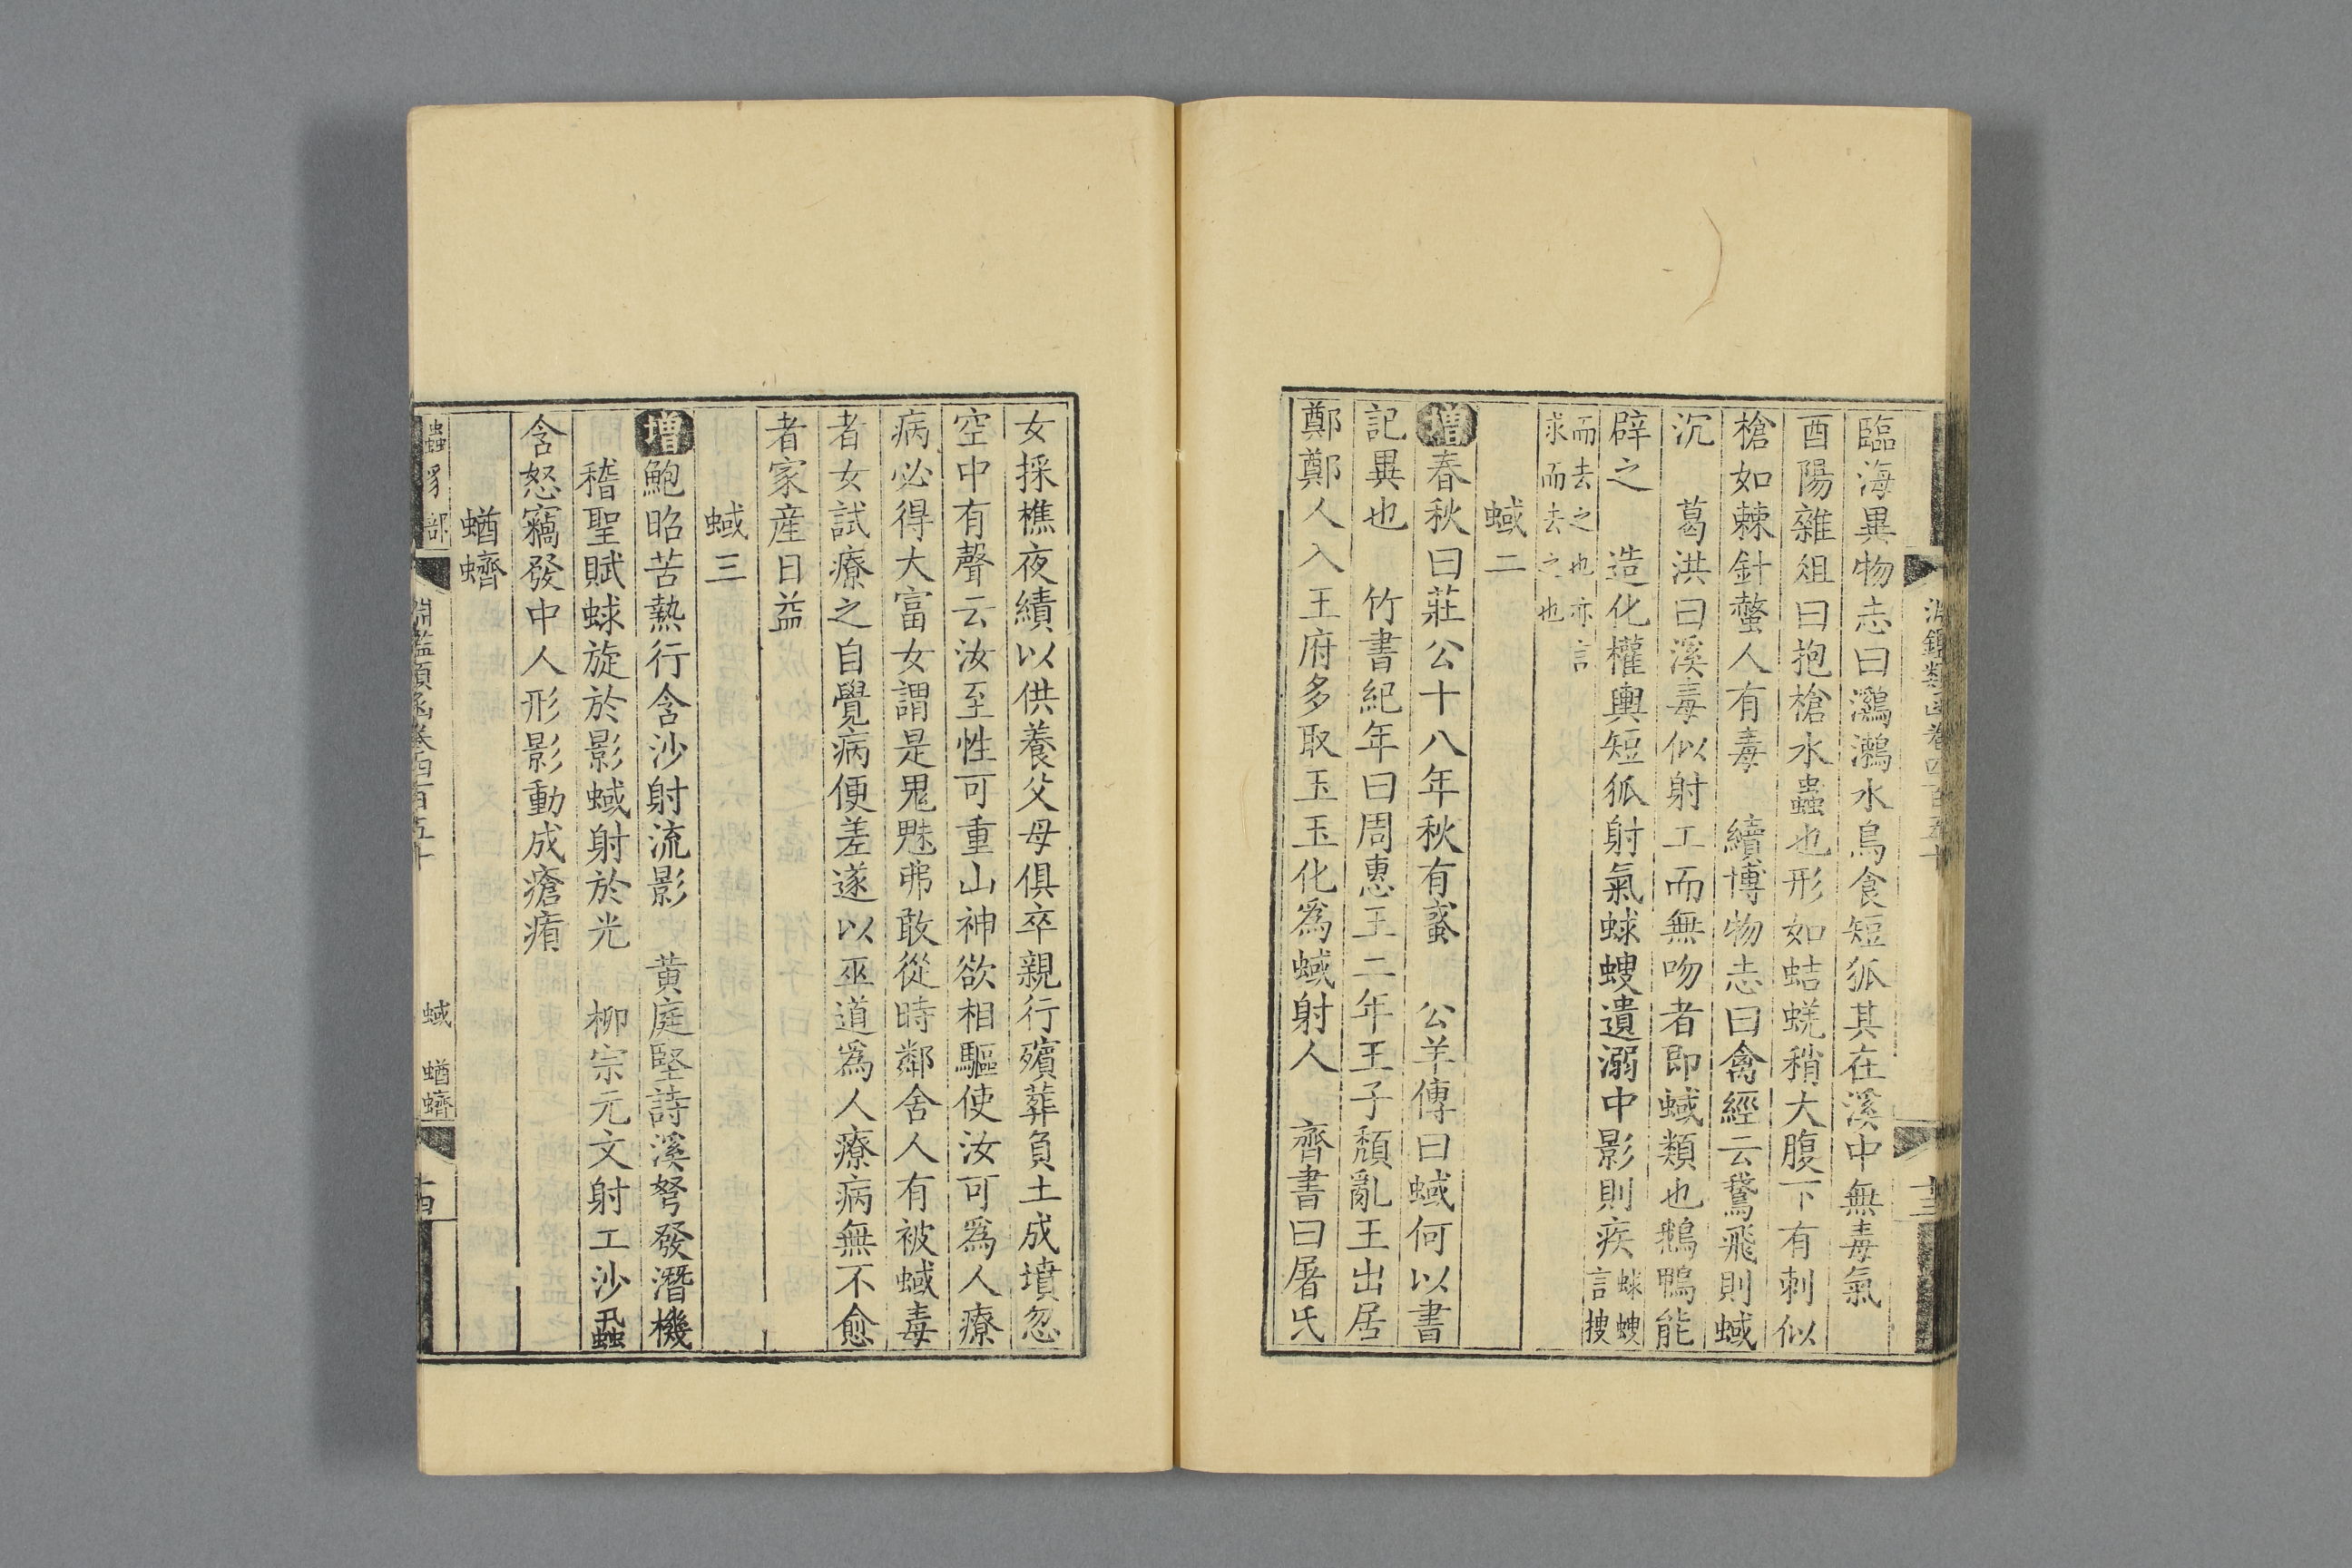 臨海異物志曰鸂鷘水鳥食短狐其在溪中無毒氣
酉陽雜俎曰抱槍水蟲也形如蛣蜣稍大腹下有刺似
槍如棘針螫人有毒　續博物志曰禽經云鵞飛則蜮
沉　葛洪曰溪毒似射工而無吻者即蜮類也鵝鴨能
辟之　造化權輿短狐射氣蛷螋遺溺中影則疾蛷螋言捜
而去之也亦言
求而去之也
蜮二
增春秋曰莊公十八年秋有蜮　公羊傳曰蜮何以書
記異也　竹書紀年曰周惠王二年王子頹亂王出居
鄭鄭人入王府多取玉玉化爲蜮射人　齊書曰屠氏
女採樵夜績以供養父母俱卒親行殯葬負土成墳忽
空中有聲云汝至性可重山神欲相驅使汝可爲人療
病必得大富女謂是鬼魅弗敢從時鄰舍人有被蜮毒
者女試療之自覺病便差遂以巫道爲人療病無不愈
者家産日益
蜮三
增鮑昭苦熱行含沙射流影　黄庭堅詩溪弩發潛機
稽聖賦蛷旋於影蜮射於光　柳宗元文射工沙蝨
含怒竊發中人形影動成瘡痏
蝤蠐
蟲豸部
淵鑑類函卷四百五十
蜮　蝤蠐
十四